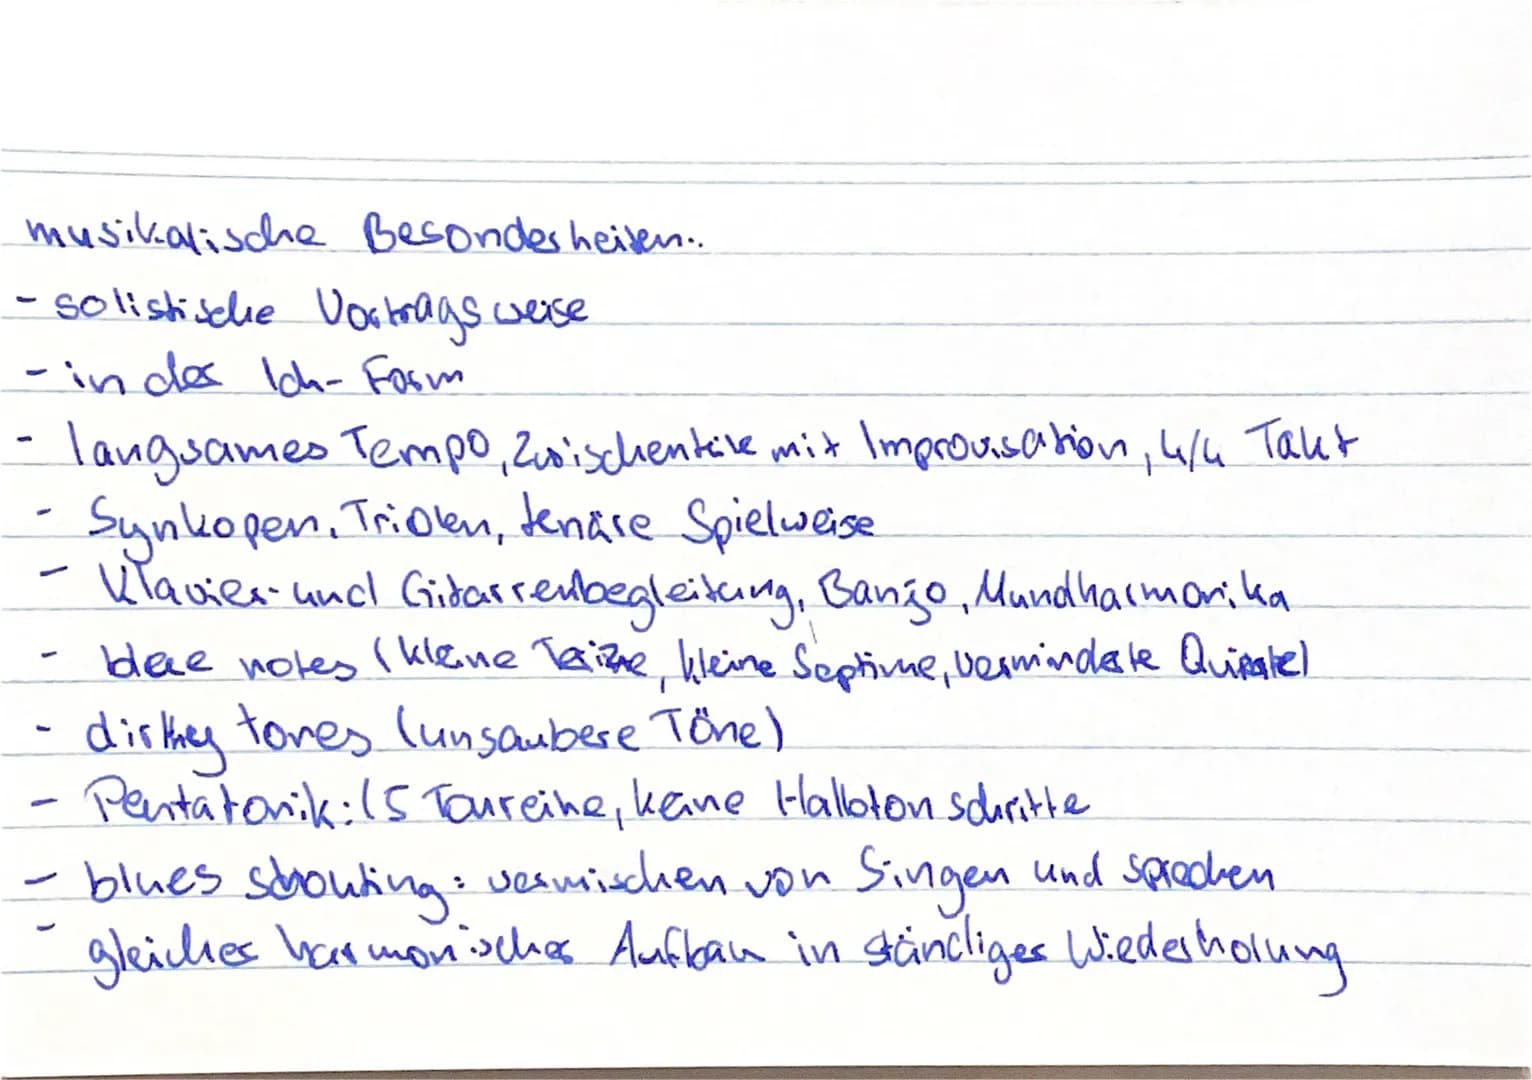 musikalische Besonderheiten:
- solistische Vortragsweise
- in der Ich-Form
- langsames Tempo, Zwischenteile mit Improvisation, 4/4 Takt
- Synkopen, Triolen, tenäre Spielweise
- Klavier- und Gitarrenbegleitung, Banjo, Mundharmonika
- blue notes (kleine Terze, kleine Septime, verminderte Quinte)
- dirthey tones (unsaubere Töne)
- Pentatonik: (5 Tonreihe, keine Halbtonschritte
- blues shouting: vermischen von Singen und sprechen
- gleicher harmonischer Aufbau in ständiger Wiederholung